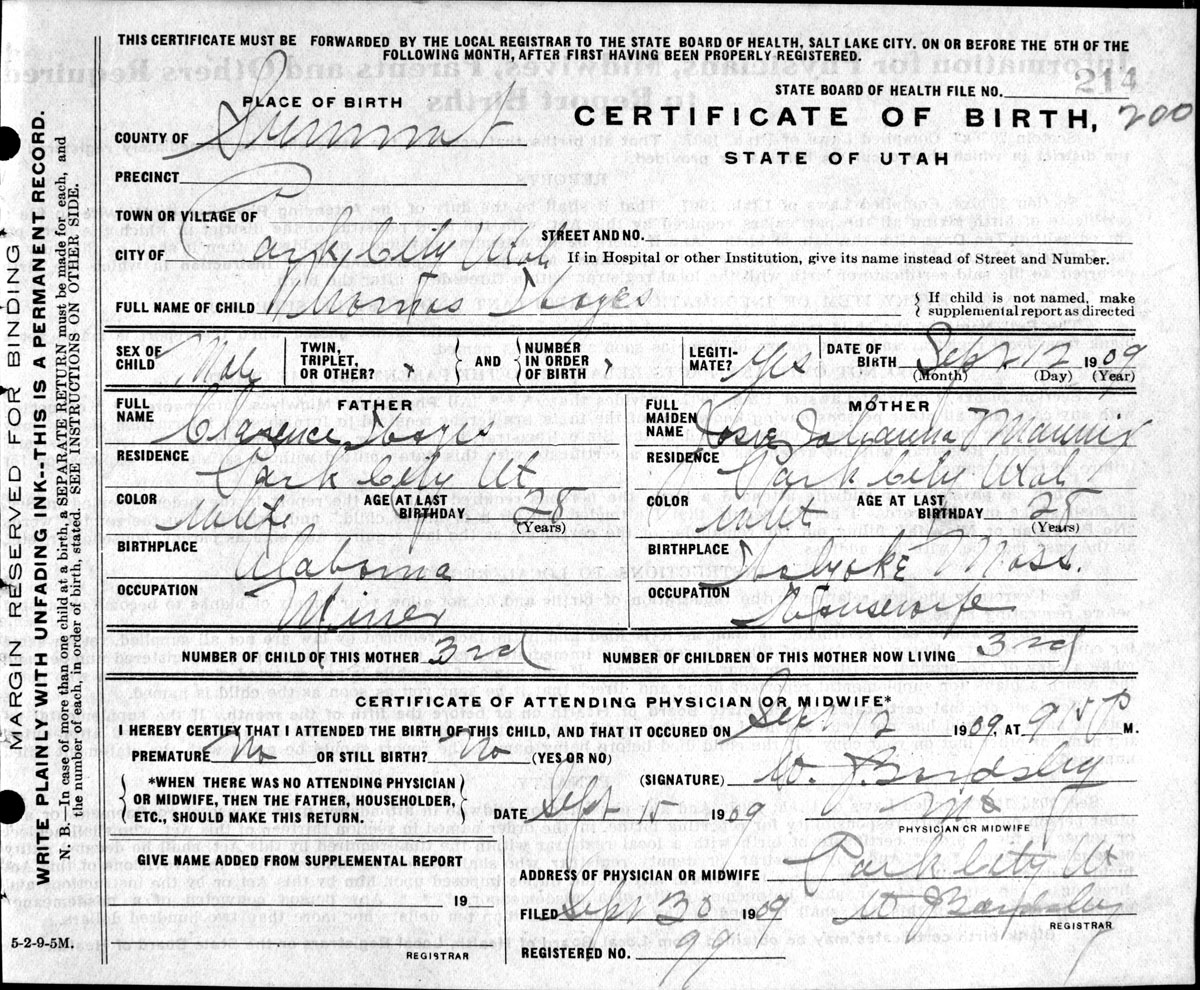 THIS CERTIFICATE MUST BE FORWARDED BY THE LOCAL REGISTRAR TO THE STATE BOARD OF HEALTH, SALT LAKE CITY. ON OR BEFORE THE 5TH OF THE
FOLLOWING MONTH, AFTER FIRST HAVING BEEN PROPERLY REGISTERED.
STATE BOARD OF HEALTH FILE NO. 214
200
PLACE OF BIRTH
CERTIFICATE OF BIRTH,
STATE OF UTAH
COUNTY OF Summit
PRECINCT
TOWN OR VILLAGE OF
STREET AND NO.
CITY OF Park City Utah
If in Hospital or other Institution, give its name instead of Street and Number.
FULL NAME OF CHILD Thomas
If child is not named, make
supplemental report as directed
SEX OF CHILD Male
TWIN, TRIPLET, OR OTHER?
AND
NUMBER IN ORDER OF BIRTH
LEGITI-MATE? Yes
DATE OF BIRTH Sept 12 1909
(Month) (Day) (Year)
FATHER
FULL NAME Clarence
RESIDENCE Park City Ut
COLOR White
AGE AT LAST BIRTHDAY 28
(Years)
BIRTHPLACE Alabama
OCCUPATION Miner
MOTHER
FULL MAIDEN NAME Johanna
RESIDENCE Park City Utah
COLOR White
AGE AT LAST BIRTHDAY 28
(Years)
BIRTHPLACE Holyoke Mass.
OCCUPATION Housewife
NUMBER OF CHILD OF THIS MOTHER 3rd
NUMBER OF CHILDREN OF THIS MOTHER NOW LIVING 3rd
CERTIFICATE OF ATTENDING PHYSICIAN OR MIDWIFE*
I HEREBY CERTIFY THAT I ATTENDED THE BIRTH OF THIS CHILD, AND THAT IT OCCURED ON Sept 12 1909, AT 9 P M.
PREMATURE No OR STILL BIRTH? No (YES OR NO)
*WHEN THERE WAS NO ATTENDING PHYSICIAN
OR MIDWIFE, THEN THE FATHER, HOUSEHOLDER,
ETC., SHOULD MAKE THIS RETURN.
(SIGNATURE) W. Bardsley
DATE Sept 15 1909
M D
PHYSICIAN OR MIDWIFE
GIVE NAME ADDED FROM SUPPLEMENTAL REPORT
19
REGISTRAR
ADDRESS OF PHYSICIAN OR MIDWIFE Park City Ut
FILED Sept 30 1909 W Bardsley
REGISTRAR
REGISTERED NO. 99
5-2-9-5M.
MARGIN RESERVED FOR BINDING
WRITE PLAINLY WITH UNFADING INK--THIS IS A PERMANENT RECORD.
N. B.—In case of more than one child at a birth, a SEPARATE RETURN must be made for each, and
the number of each, in order of birth, stated. SEE INSTRUCTIONS ON OTHER SIDE.